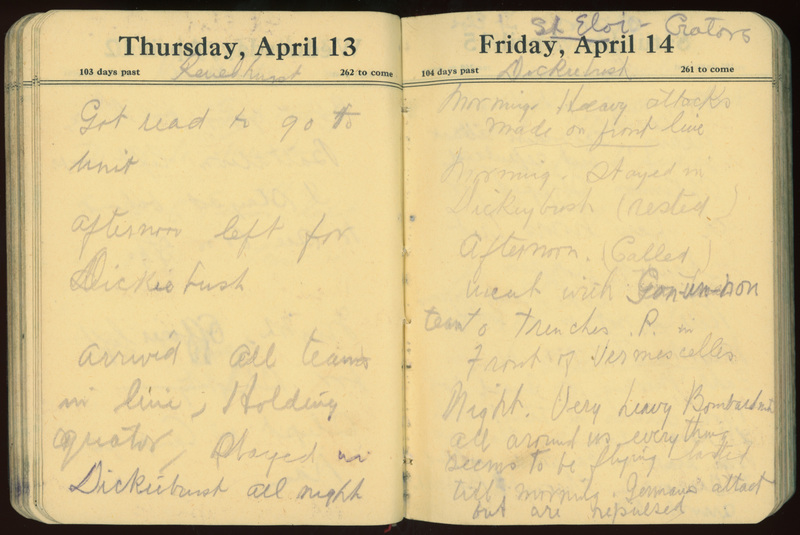 Thursday, April 13
103 days past
262 to come
Got read to go to
unit
afternoon left for
Dickiebush
arrived all teams
in line, Holding
crator, stayed in
Dickiebush all night
St Eloi - Crators
Friday, April 14
104 days past Dickiebush 261 to come
Morning. Heavy attacks
made on front line
Morning. Stayed in
Dickeybush (rested.)
Afternoon. (Called)
went with
team to Trenches. P. in
Front of Vermescelles
Night. Very heavy Bombardment
all around us everything
seems to be flying lasted
till morning. Germans attact
but are repulsed